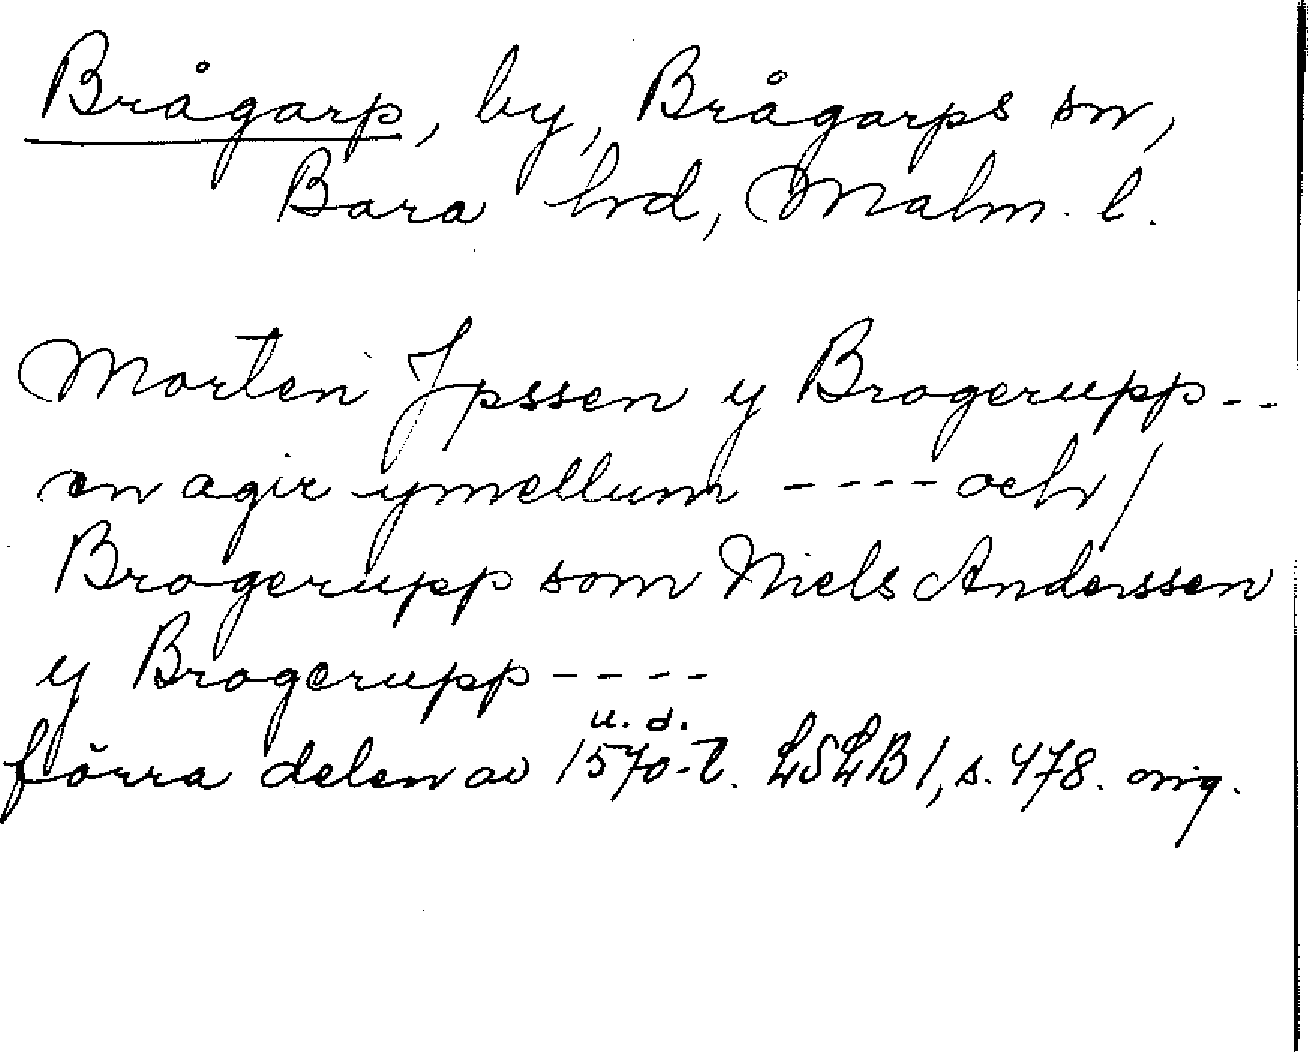 Brågarp, by, Brågarps sn,
Bara hd, Malm. l.
Morten Jpssen y Brogerupp--
en agir ymellum ---- och/
Brogerupp som Niels Anderssen
y Brogerupp ----
u. d.
förra delen av 1570-t. LSLB 1, s. 478. orig.